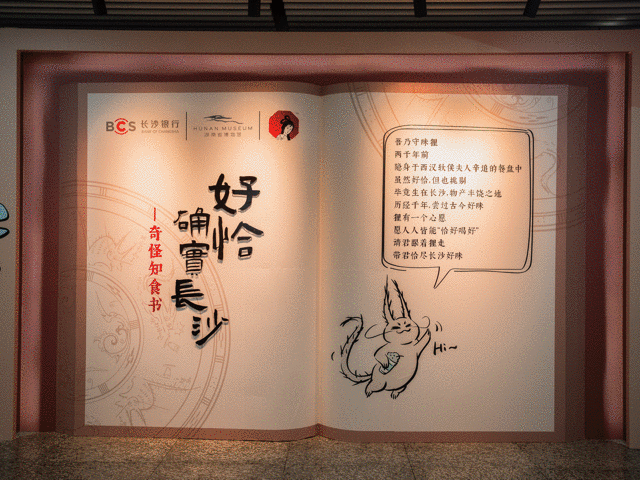 BCS 长沙银行
BANK OF CHANGSHA
HUNAN MUSEUM
湖南省博物馆
好恰
确實長沙
—奇怪知食书
吾乃守味狸
两千年前
隐身于西汉轪侯夫人辛追的餐盘中
虽然好恰,但也挑剔
毕竟生在长沙,物产丰饶之地
历经千年,尝过古今好味
狸有一个心愿
愿人人皆能“恰好喝好”
请君跟着狸走
带君恰尽长沙好味
Hi~